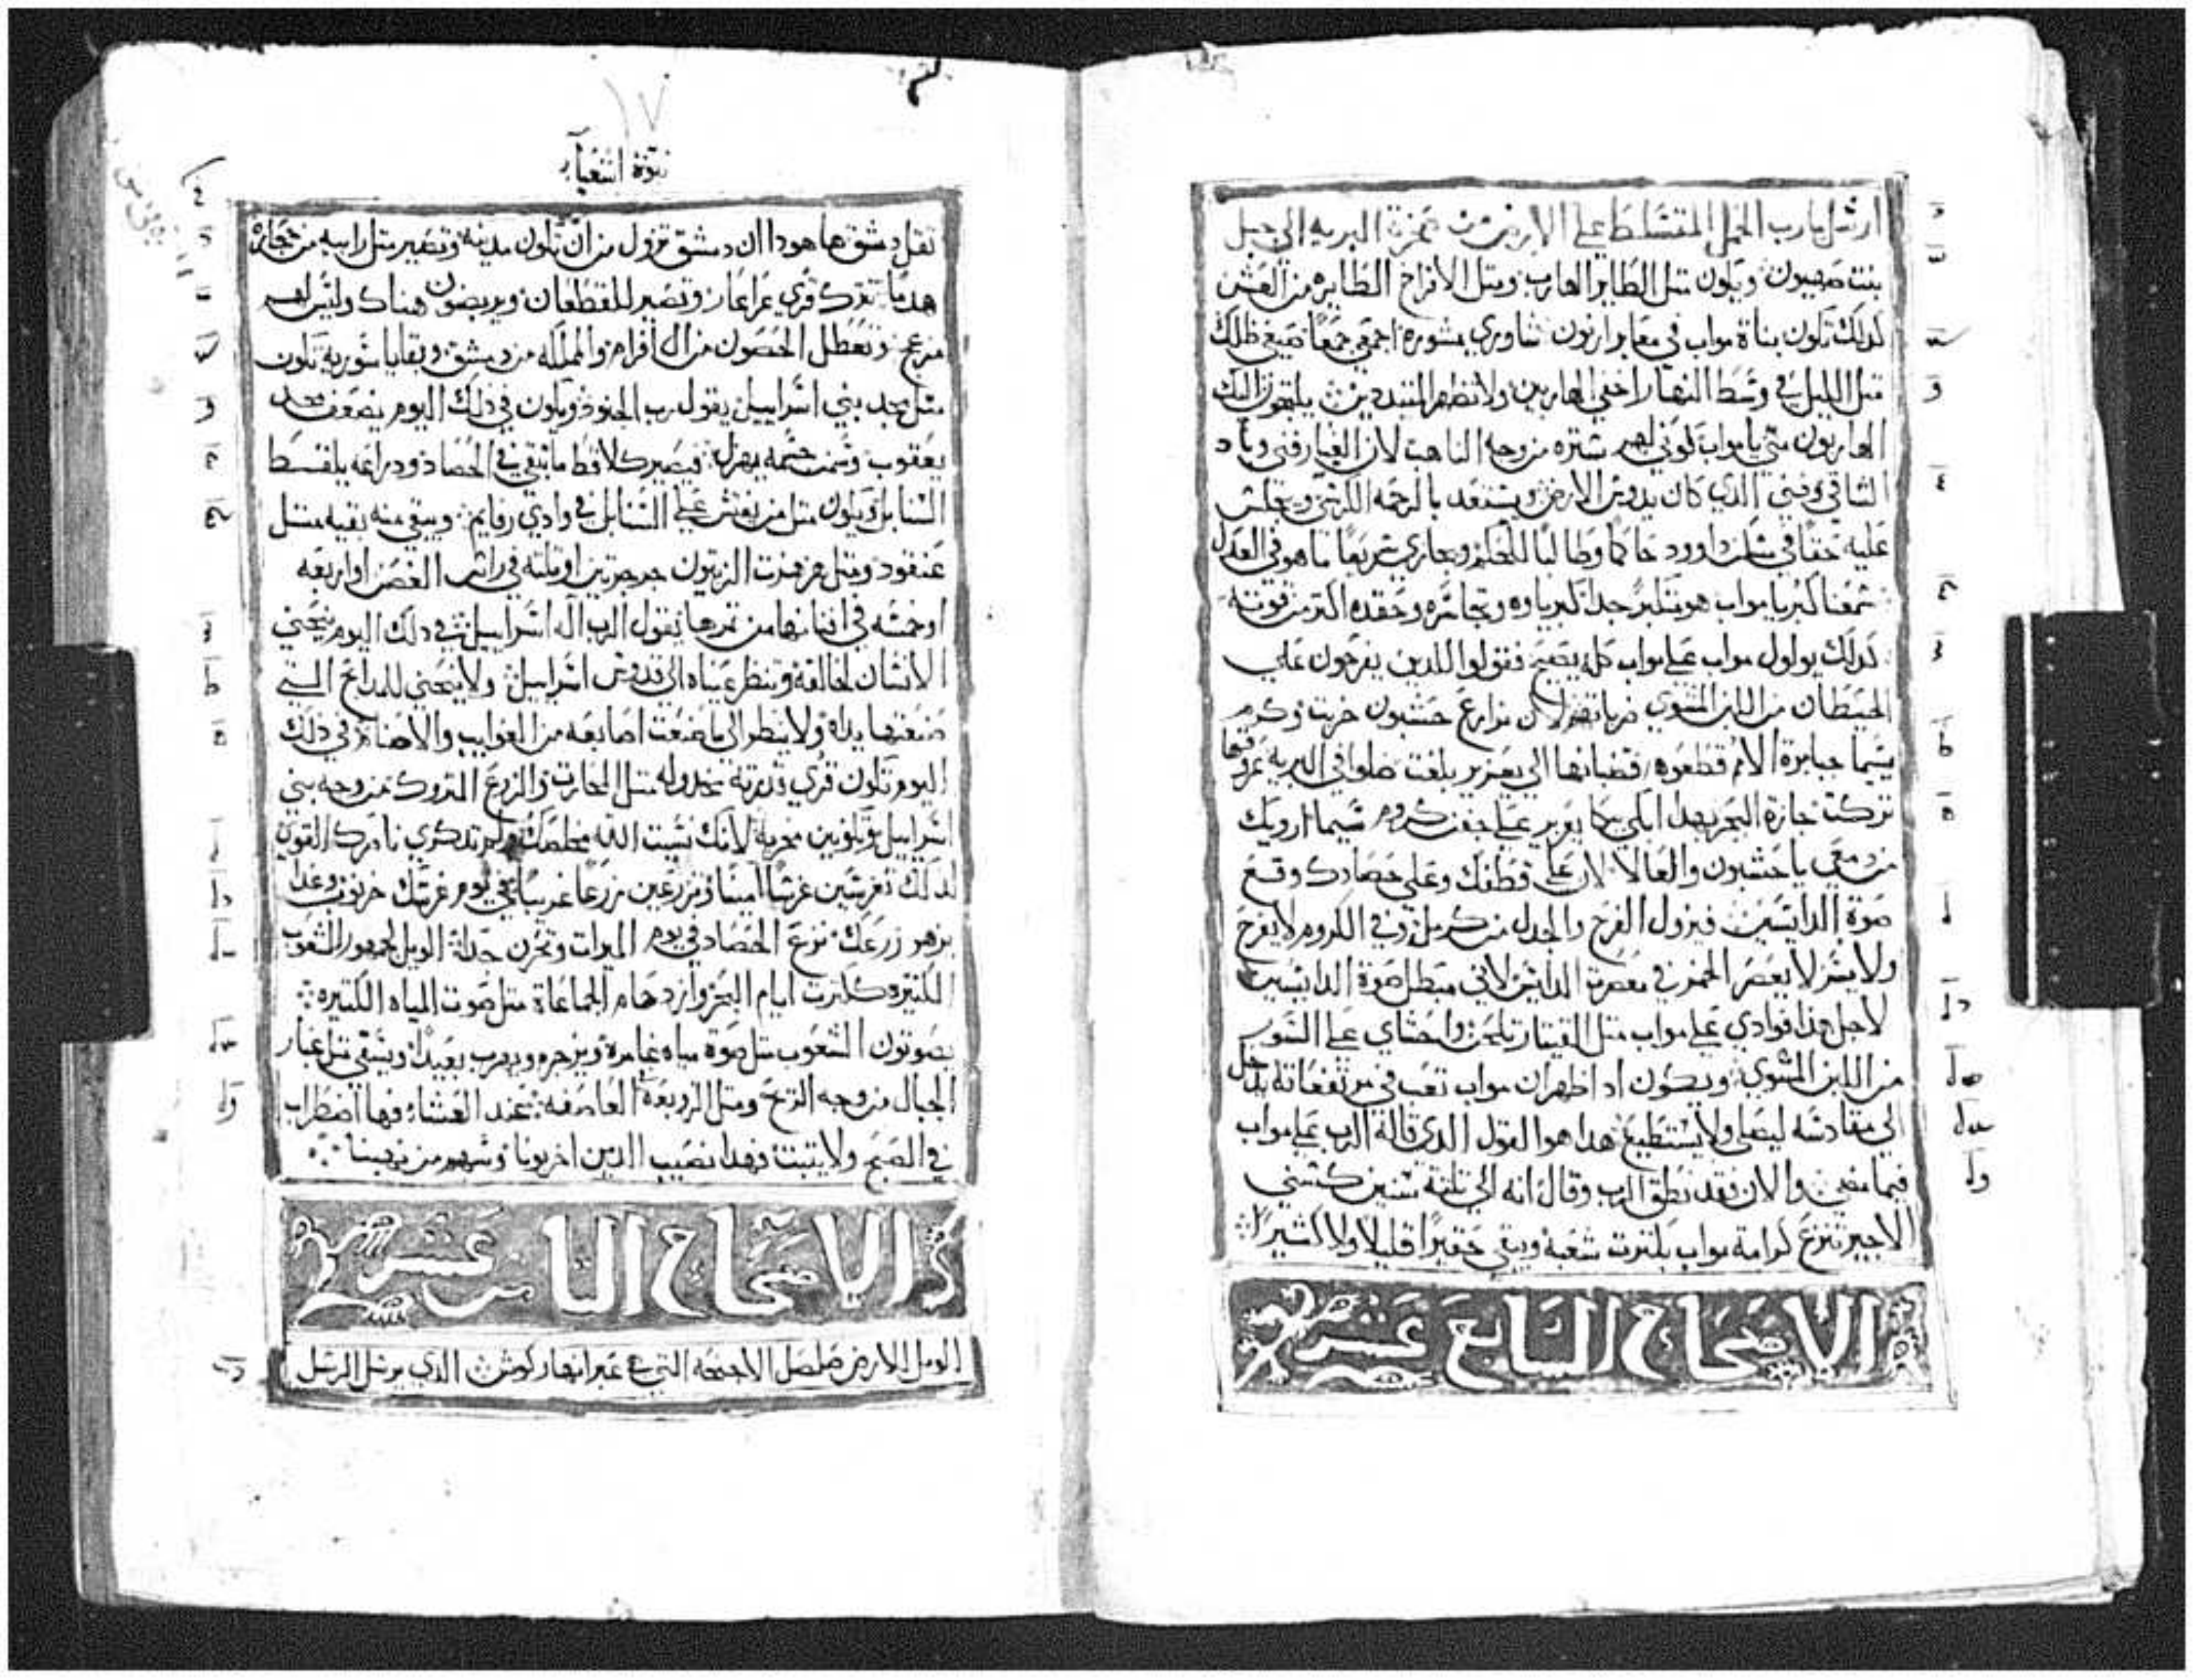 ارسل يارب الحمل المتسلط على الارض من صخرة البريه الي جبل
بنت صهيون ويكون متل الطاير الهارب ومتل الافراخ الطايره من العش
كدلك تكون بناة مواب في معابر ارنون شاوري بمشوره اجمعي جمعًا ضيعي ظلك
متل الليل في وسط النهار اخفي الهاربين ولا تظهر المتبددين يلتجون اليك
الهاربون مني يا مواب كوني لهم ستره من وجه الناهب لان الغبار فني وباد
الشاقي وفني الدي كان يدوس الارض ويستعد بالرحمه الكرسي ويجلس
عليه حقًا في مسكن داوود حاكمًا وطالبًا للحكم ويجازي سريعًا ما هو في العدل
سمعنا كبريا مواب هو متكبر جدا كبرياوه وتجاسره وحقده اكتر من قوته
كدلك يولول مواب على مواب كله يضج فقولوا للدين يفرحون على
الحيطان من اللبن المشوي ضرباتهم لان مزارع حشبون خربت وكرم
سيما جبابرة الامم قطعوه قضبانها الي يعزير بلغت ضلوا في البريه عروقها
تركت جازة البحر بهدا ابكي ببكا يعزير على جفن كروم سيما ارويك
من دمعي يا حشبون والعالا لان على قطفك وعلى حصادك وقع
صوة الدايسين فيزول الفرح والجدل من كرمل وفي الكروم لا يفرح
ولا يسر لا يعصر الخمر في معصرة الدايس لاني مبطل صوة الدايسين
لاجل هدا فوادي على مواب متل القيتار يلحن واحشاي على السور
من اللبن المشوي ويكون ادا ظهر ان مواب تعب في مرتفعاته يدخل
الي مقادسه ليصلي ولا يستطيع هدا هو القول الدي قاله الرب على مواب
فيما مضي والان فقد نطق الرب وقال انه الي تلتة سنين كسني
الاجير تنزع كرامة مواب بكترت شعبه ويبقي حقيرًا قليلا ولا كتيرًا
الاصحاح السابع عشر
١٧
نبوة اشعيا
تقل دمشق ها هودا ان دمشق تزول من ان تكون مدينه وتصير متل رابيه من حجاره
هدما تترك قري عراعار وتصير للقطعان ويربضون هناك وليس لهم
مزعج وتعطل الحصون من ال افرام والمملكه من دمشق وبقايا سورية تكون
متل مجد بني اسراييل يقول رب الجنود ويكون في دلك اليوم يضعف مجد
يعقوب وسمن جسمه يهزل فيصير كلاقط ما تبقي في الحصاد ودراعه يلقط
السنابل ويكون متل من يفتش على السنابل في وادي رفايم ويبقي منه بقيه متل
عنقود ومتل من فرت الزيتون حرجرتين او تلته في راس الغصن او اربعه
او خمسه في افنانها من تمرها يقول الرب اله اسراييل في دلك اليوم ينحني
الانسان لخالقه وتنظر عيناه الي قدوس اسراييل ولا ينحني للمدابح التي
صنعتها يداه ولا ينظر الي ما صنعت اصابعه من الغوايب والاصنام في دلك
اليوم تكون قري قوته مخدوله متل المحارت والزرع المتروك من وجه بني
اسراييل وتكونين مخربه لانك نسيت الله مخلصك ولم تدكري ناصرك القوي
لدلك تغرسين غرسًا امينا وتزرعين زرعًا غريبًا في يوم غرسك خرنوب وغدا
يزهر زرعك نزع الحصاد في يوم الميرات وتحزن جدا الويل لجمهور الشعوب
الكتيره ككترت ايام البحر وازدحام الجماعاة متل صوت المياه الكتيره
يصوتون الشعوب متل صوة مياه غامرة ويزجره ويهرب بعيدًا ويسقي متل غبار
الجبال من وجه الريح ومتل الزوبعة العاصفه عند العشاء فها اضطراب
في الصبح ولا يتبت فهدا نصيب الدين اخربونا وسهم من نهبنا
الاصحاح التامن عشر
الويل للارض صلصل الاجنحه التي في عبر انهار كوش الدي يرسل الرسل